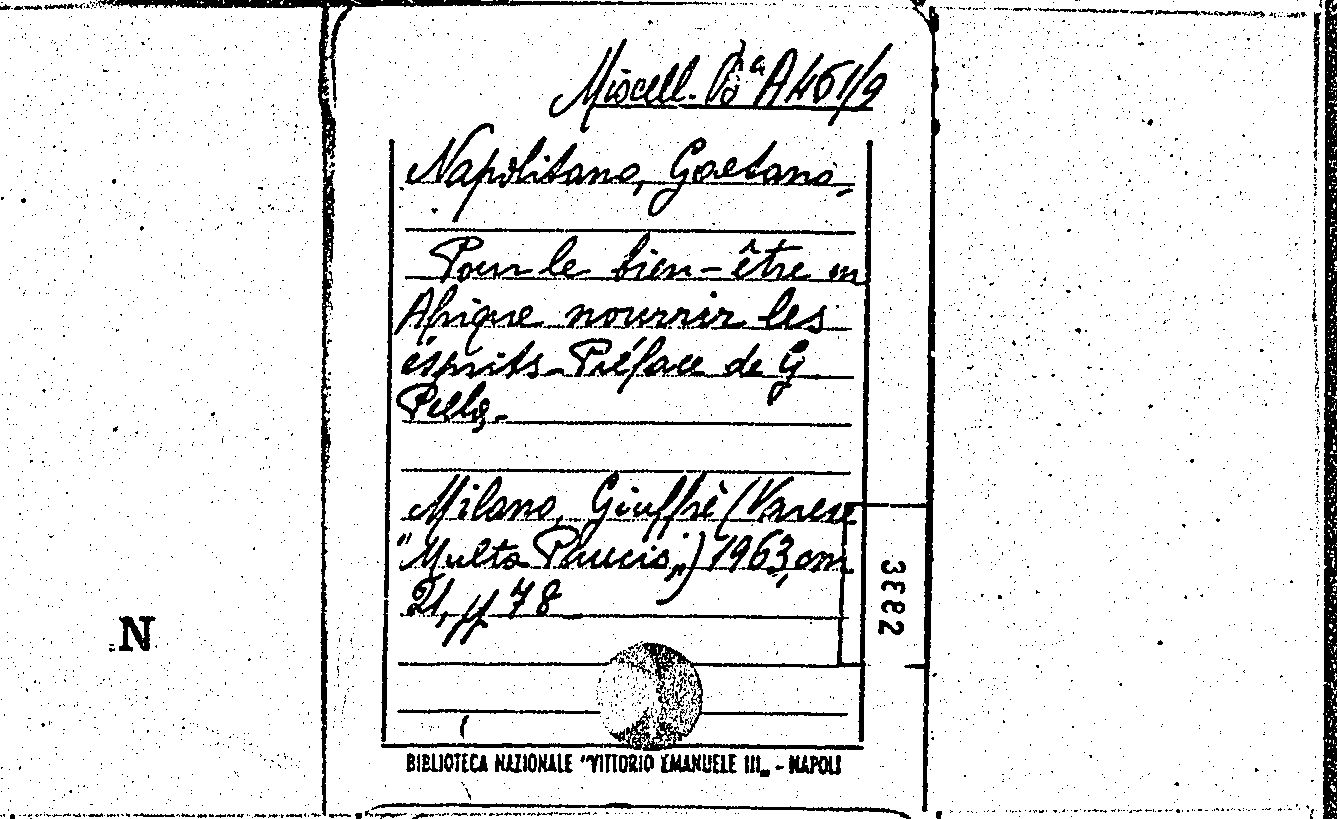 Miscell. Bª A 461/9
Napolitano, Gaetano.
Pour le bien-être en
Afrique nourrir les
ésprits - Préface de G
Pella.
Milano, Giuffrè (Varese
"Multa Paucis„) 1963, cm
21, pp 78
3882
N
BIBLIOTECA NAZIONALE "VITTORIO EMANUELE III„ - NAPOLI